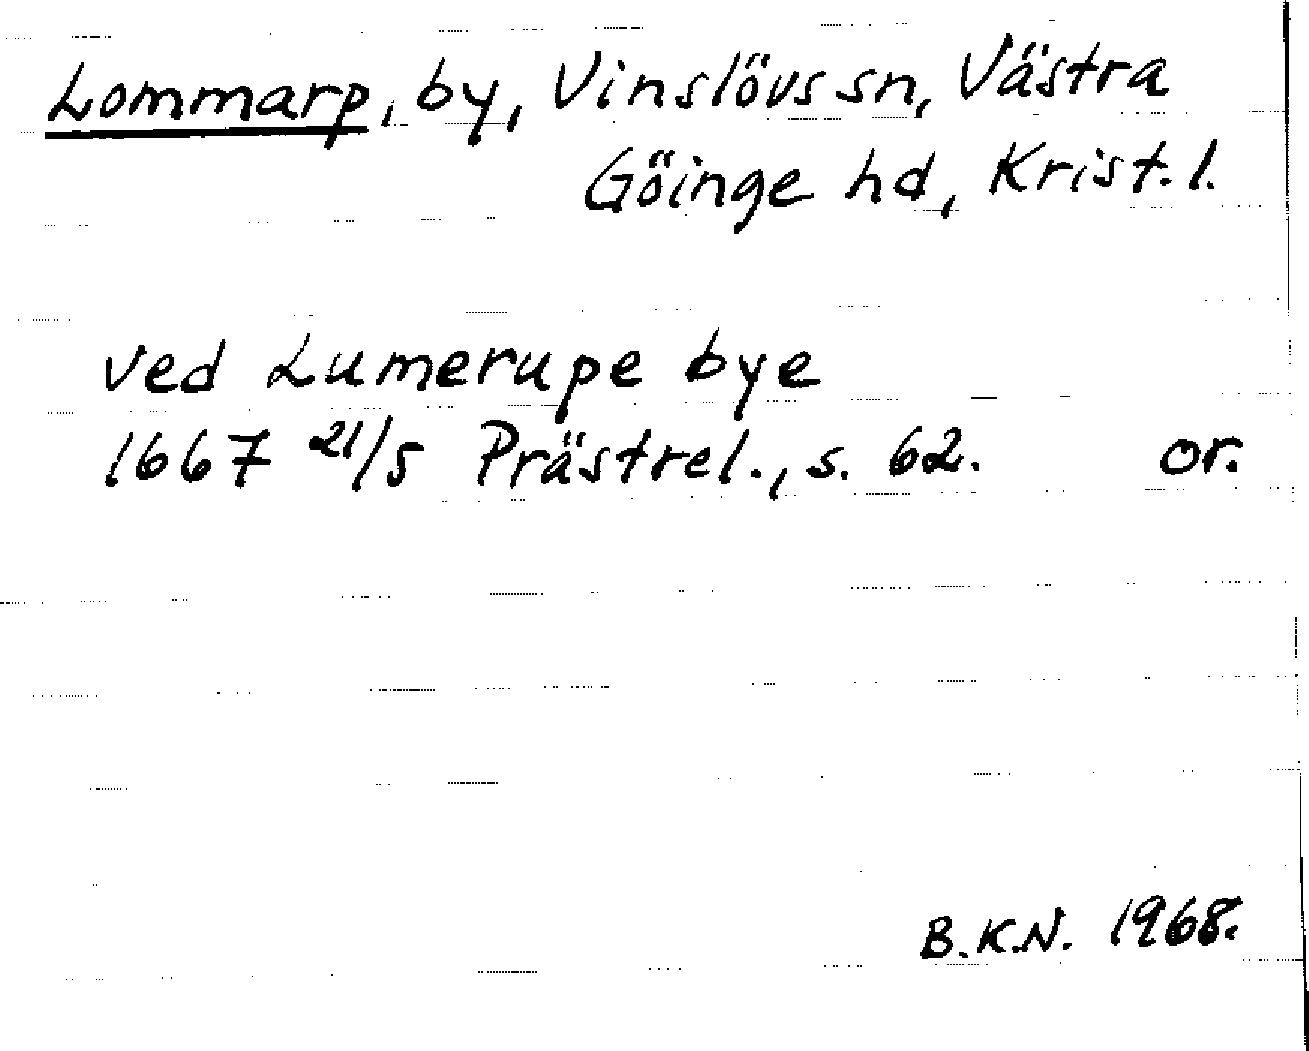 Lommarp, by, Vinslövs sn, Västra
Göinge hd, Krist. l.
ved Lumerupe bye
1667 21/5 Prästrel., s. 62. or.
B.K.N. 1968.